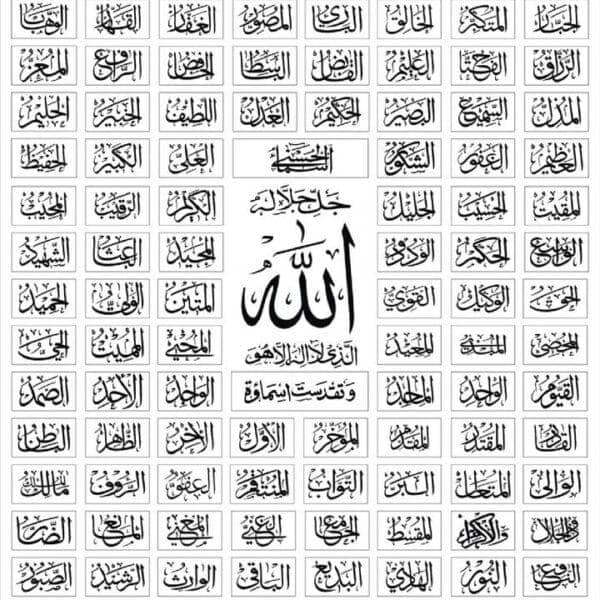 الجبار المتكبر الخالق البارئ المصور الغفار القهار الوهاب
الرزاق الفتاح العليم القابض الباسط الخافض الرافع المعز
المذل السميع البصير الحكيم العدل اللطيف الخبير الحليم
العظيم الغفور الشكور أسماء الحسنى العلي الكبير الحفيظ
المقيت الحسيب الجليل جل جلاله الكريم الرقيب المجيب
الواسع الحكيم الودود المجيد الباعث الشهيد
الله
الحق الوكيل القوي المتين الولي الحميد
المحصي المبدئ المعيد الذي لا اله الا هو المحيي المميت الحي
القيوم الواجد الماجد وتقدست اسماؤه الواحد الأحد الصمد
القادر المقتدر المقدم المؤخر الأول الآخر الظاهر الباطن
الوالي المتعال البر التواب المنتقم العفو الرؤوف مالك الملك
ذو الجلال والاكرام المقسط الجامع الغني المغني المانع الضار
النافع النور الهادي البديع الباقي الوارث الرشيد الصبور